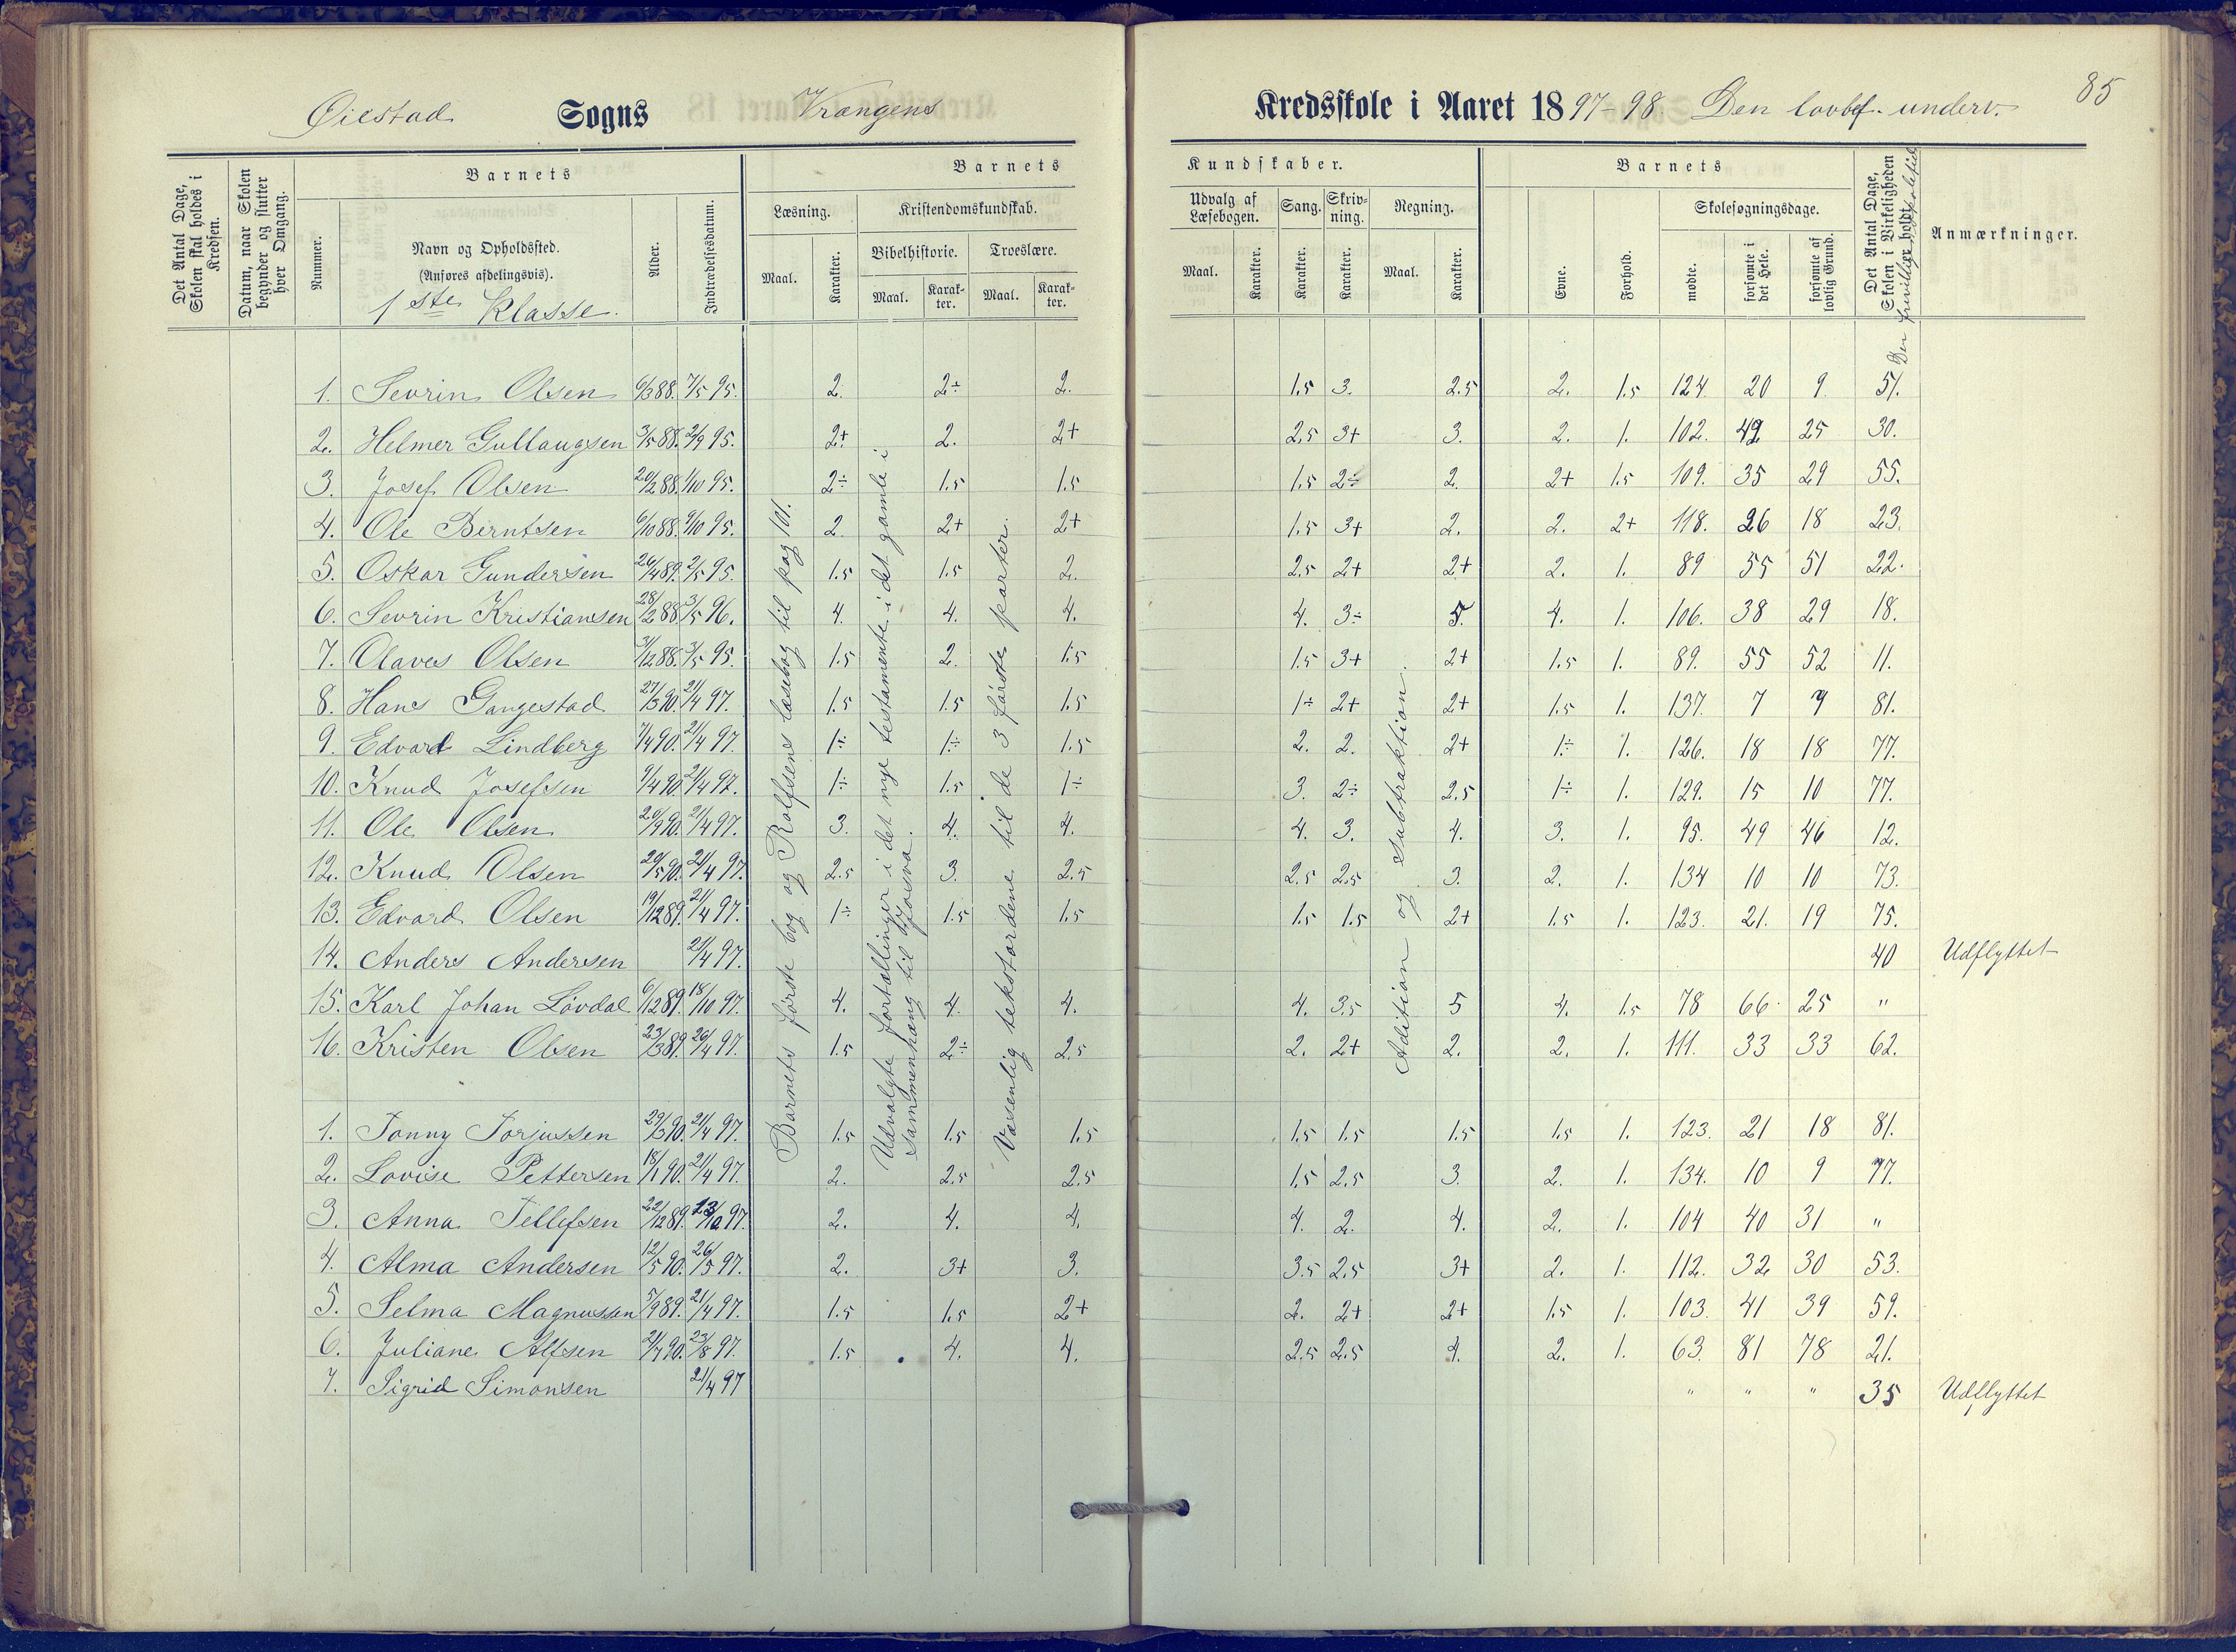 Øiestad Sogns Vrængens Kredsskole i Aaret 1897-98 Den lovbef. underv. 85
Det Antal Dage, Skolen skal holdes i Kredsen.
Datum, naar Skolen begynder og slutter hver Omgang.
Barnets
Nummer.
Navn og Opholdssted.
(Anføres afdelingsvis).
1ste Klasse.
Alder.
Indtrædelsesdatum.
Barnets Kundskaber.
Læsning.
Maal.
Karakter.
Kristendomskundskab.
Bibelhistorie.
Maal.
Karakter.
Troeslære.
Maal.
Karakter.
Udvalg af Læsebogen.
Maal.
Karakter.
Sang.
Karakter.
Skrivning.
Karakter.
Regning.
Maal.
Karakter.
Barnets
Evne.
Forhold.
Skolesøgningsdage.
mødte.
forsømte i det Hele.
forsømte af lovlig Grund.
Det Antal Dage, Skolen i Virkeligheden er holdt.
Den frivillige
Anmærkninger.
Barnets første bog og Rolfsens læsebog til pag 101.
Udvalgte fortællinger i det nye testamente i det gamle i sammenhæng til Josva.
Væsenlig tekstordene til de 3 første parter.
Adition og Subtraktion.
1. Sevrin Olsen 6/3 88. 7/5 95. 2. 2÷ 2. 1.5 3. 2.5 2. 1.5 124. 20 9 51.
2. Helmer Gullaugsen 3/5 88. 2/9 95. 2+ 2. 2+ 2.5 3+ 3. 2. 1. 102. 42 25 30.
3. Josef Olsen 20/2 88. 1/10 95. 2÷ 1.5 1.5 1.5 2÷ 2. 2+ 1.5 109. 35 29 55.
4. Ole Berntsen 6/10 88. 9/10 95. 2. 2+ 2+ 1.5 3+ 2. 2. 2+ 118. 26 18 23.
5. Oskar Gundersen 26/4 89. 2/5 95. 1.5 1.5 2. 2.5 2+ 2+ 2. 1. 89 55 51 22.
6. Sevrin Kristiansen 28/2 88. 3/5 96. 4. 4. 4. 4. 3÷ 5. 4. 1. 106. 38 29 18.
7. Olaves Olsen 3/12 88. 3/5 95. 1.5 2. 1.5 1.5 3+ 2+ 1.5 1. 89. 55 52 11.
8. Hans Gangestad 27/3 90. 21/4 97. 1.5 1.5 1.5 1÷ 2+ 2+ 1.5 1. 137. 7 7 81.
9. Edvard Lindberg 7/4 90. 21/4 97. 1÷ 1÷ 1.5 2. 2. 2+ 1÷ 1. 126. 18 18 77.
10. Knud Josefsen 9/4 90. 21/4 97. 1÷ 1.5 1÷ 3. 2÷ 2.5 1÷ 1. 129. 15 10 77.
11. Ole Olsen 20/9 90. 21/4 97. 3. 4. 4. 4. 3. 4. 3. 1. 95. 49 46 12.
12. Knud Olsen 29/5 90. 21/4 97. 2.5 3. 2.5 2.5 2.5 3. 2. 1. 134 10 10 73.
13. Edvard Olsen 19/12 89. 21/4 97. 1÷ 1.5 1.5 1.5 1.5 2+ 1.5 1. 123. 21. 19 75.
14. Anders Andersen 21/4 97. 40 Udflyttet
15. Karl Johan Lövdal 6/12 89. 18/10 97. 4. 4. 4. 4. 3.5 5 4. 1.5 78 66 25 "
16. Kristen Olsen 23/3 89. 26/4 97. 1.5 2÷ 2.5 2. 2+ 2. 2. 1. 111. 33 33 62.
1. Tonny Torjussen 29/3 90. 21/4 97. 1.5 1.5 1.5 1.5 1.5 1.5 1.5 1. 123. 21 18 81.
2. Lovise Pettersen 18/1 90. 21/4 97. 2. 2.5 2.5 1.5 2.5 3. 2. 1. 134. 10 9 77.
3. Anna Tellefsen 22/12 89. 13/10 97. 2. 4. 4. 4. 2. 4. 2. 1. 104 40 31 "
4. Alma Andersen 12/5 90. 26/5 97. 2. 3+ 3. 3.5 2.5 3+ 2. 1. 112. 32 30 53.
5. Selma Magnussen 5/9 89. 21/4 97. 1.5 1.5 2+ 2. 2+ 2+ 1.5 1. 103. 41 39 59.
6. Juliane Alfsen 21/7 90. 23/8 97. 1.5 4. 4. 2.5 2.5 4. 2. 1. 63. 81 78 21.
7. Sigrid Simonsen 21/4 97 " " " 35 Udflyttet